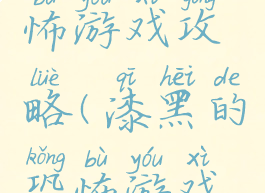 bù yóu xì gōng
怖游戏攻
lüè qī hēi de
略(漆黑的
kǒng bù yóu xì
恐怖游戏